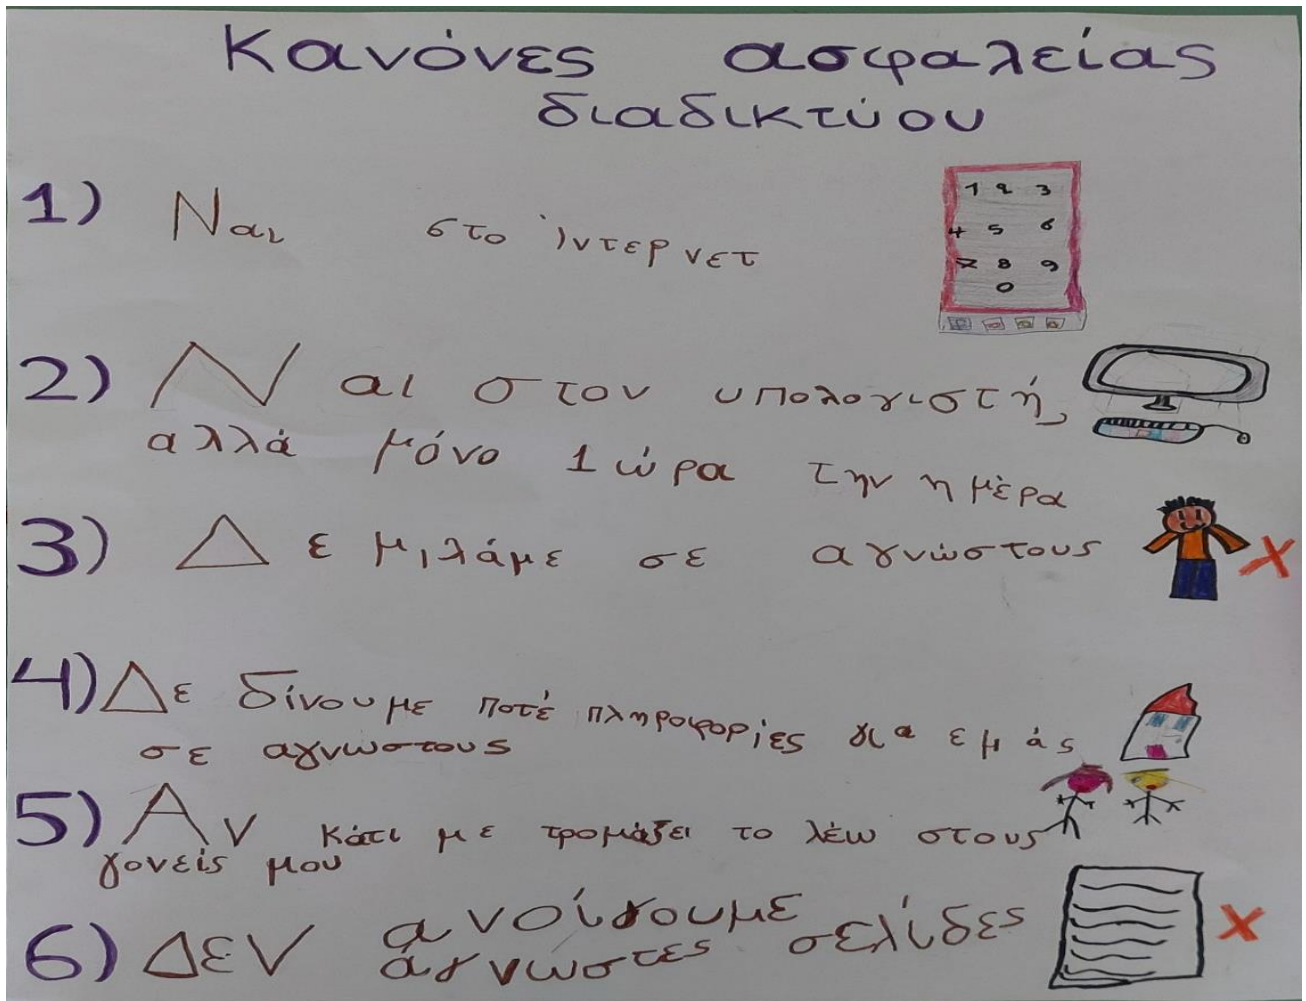 Κανόνες ασφαλείας
διαδικτύου
1) Ναι στο ίντερνετ
1 2 3
4 5 6
7 8 9
0
2) Ναι στον υπολογιστή,
αλλά μόνο 1 ώρα την ημέρα
3) Δε μιλάμε σε αγνώστους
4) Δε δίνουμε ποτέ πληροφορίες για εμάς
σε αγνωστους
5) Αν κάτι με τρομάζει το λέω στους
γονείς μου
6) ΔΕΝ ανοίγουμε σελίδες
άγνωστες